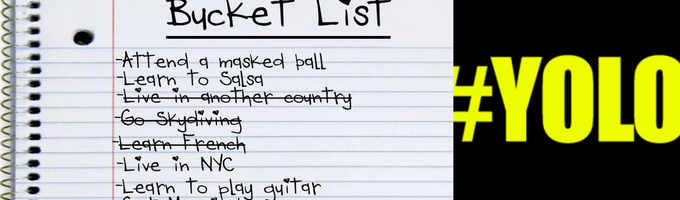 Bucket List
-Attend a masked ball
-Learn to Salsa
-Live in another country
-Go Skydiving
-Learn French
-Live in NYC
-Learn to play guitar
#YOLO